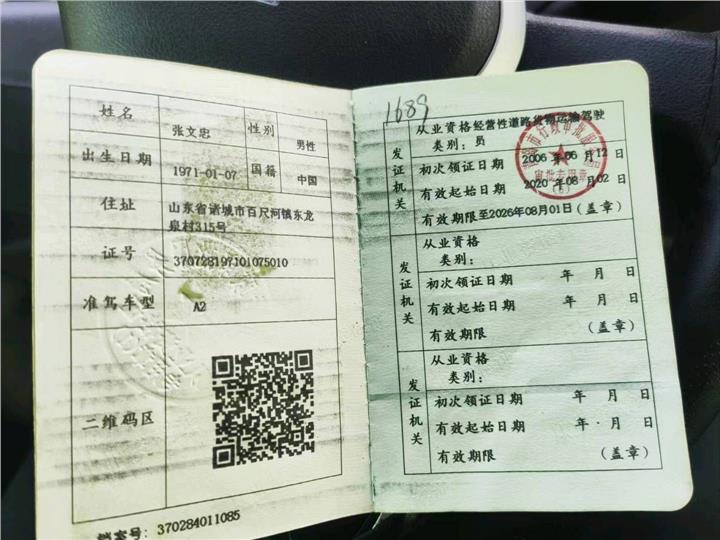 姓名 张文忠 性别 男性
出生日期 1971-01-07 国籍 中国
住址 山东省诸城市百尺河镇东龙
泉村315号
证号 370728197101075010
准驾车型 A2
二维码区
档案号: 370284011085
1689
发证机关
从业资格 经营性道路货物运输驾驶
类别: 员
初次领证日期 2006 年 06 月 12 日
有效起始日期 2020 年 08 月 02 日
有效期限 至2026年08月01日 (盖章)
审批专用章
发证机关
从业资格
类别:
初次领证日期 年 月 日
有效起始日期 年 月 日
有效期限 (盖章)
发证机关
从业资格
类别:
初次领证日期 年 月 日
有效起始日期 年 月 日
有效期限 (盖章)